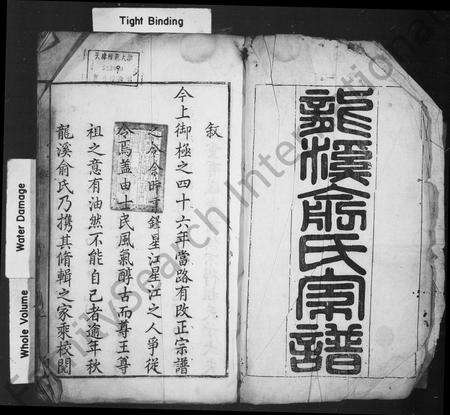 Tight Binding
Water Damage
Whole Volume
龍溪俞氏宗譜
敘
今上御極之四十六年當路有改正宗譜
之令余時事鋒星江星江之人爭從
令焉蓋由士民風氣醇古而尊王尊
祖之意有油然不能自已者逾年秋
龍溪俞氏乃攜其脩輯之家乘校閱
FamilySearch International